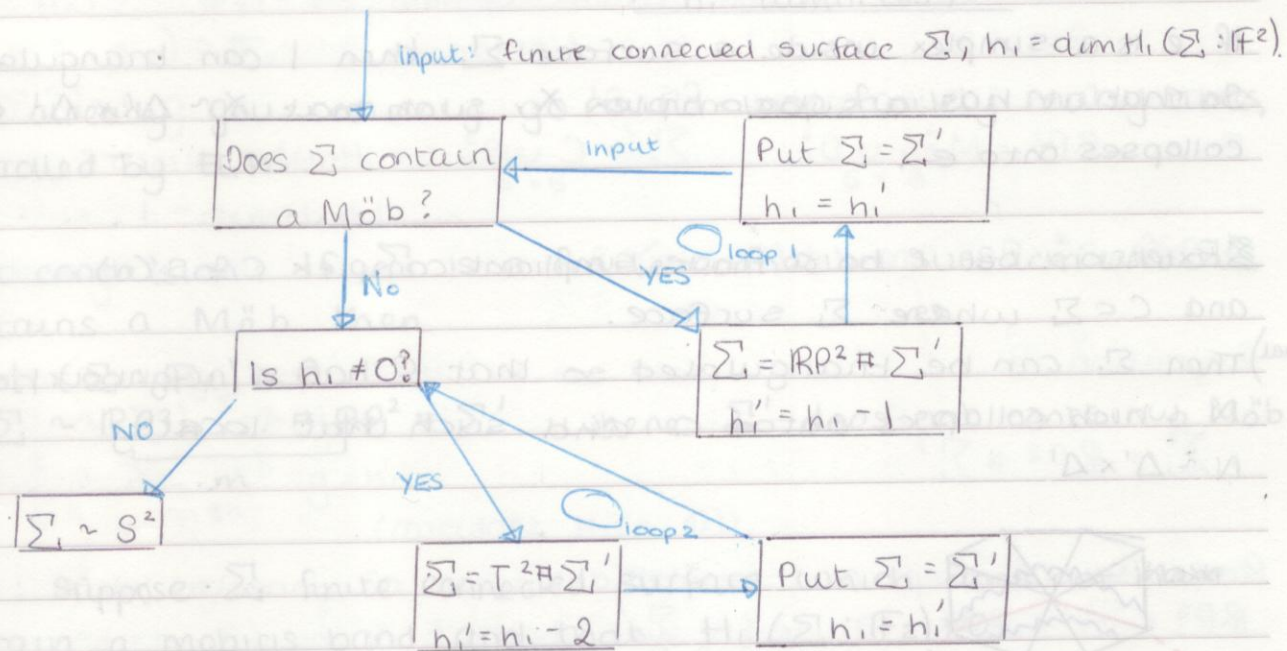 Input: finite connected surface Σ, h₁ = dim H₁(Σ, 𝔽²).
Does Σ contain
a Möb?
Input
Put Σ = Σ'
h₁ = h₁'
loop 1
YES
No
Is h₁ ≠ 0?
Σ = RP² # Σ'
h₁' = h₁ - 1
NO
YES
loop 2
Σ ~ S²
Σ = T² # Σ'
h₁' = h₁ - 2
Put Σ = Σ'
h₁ = h₁'